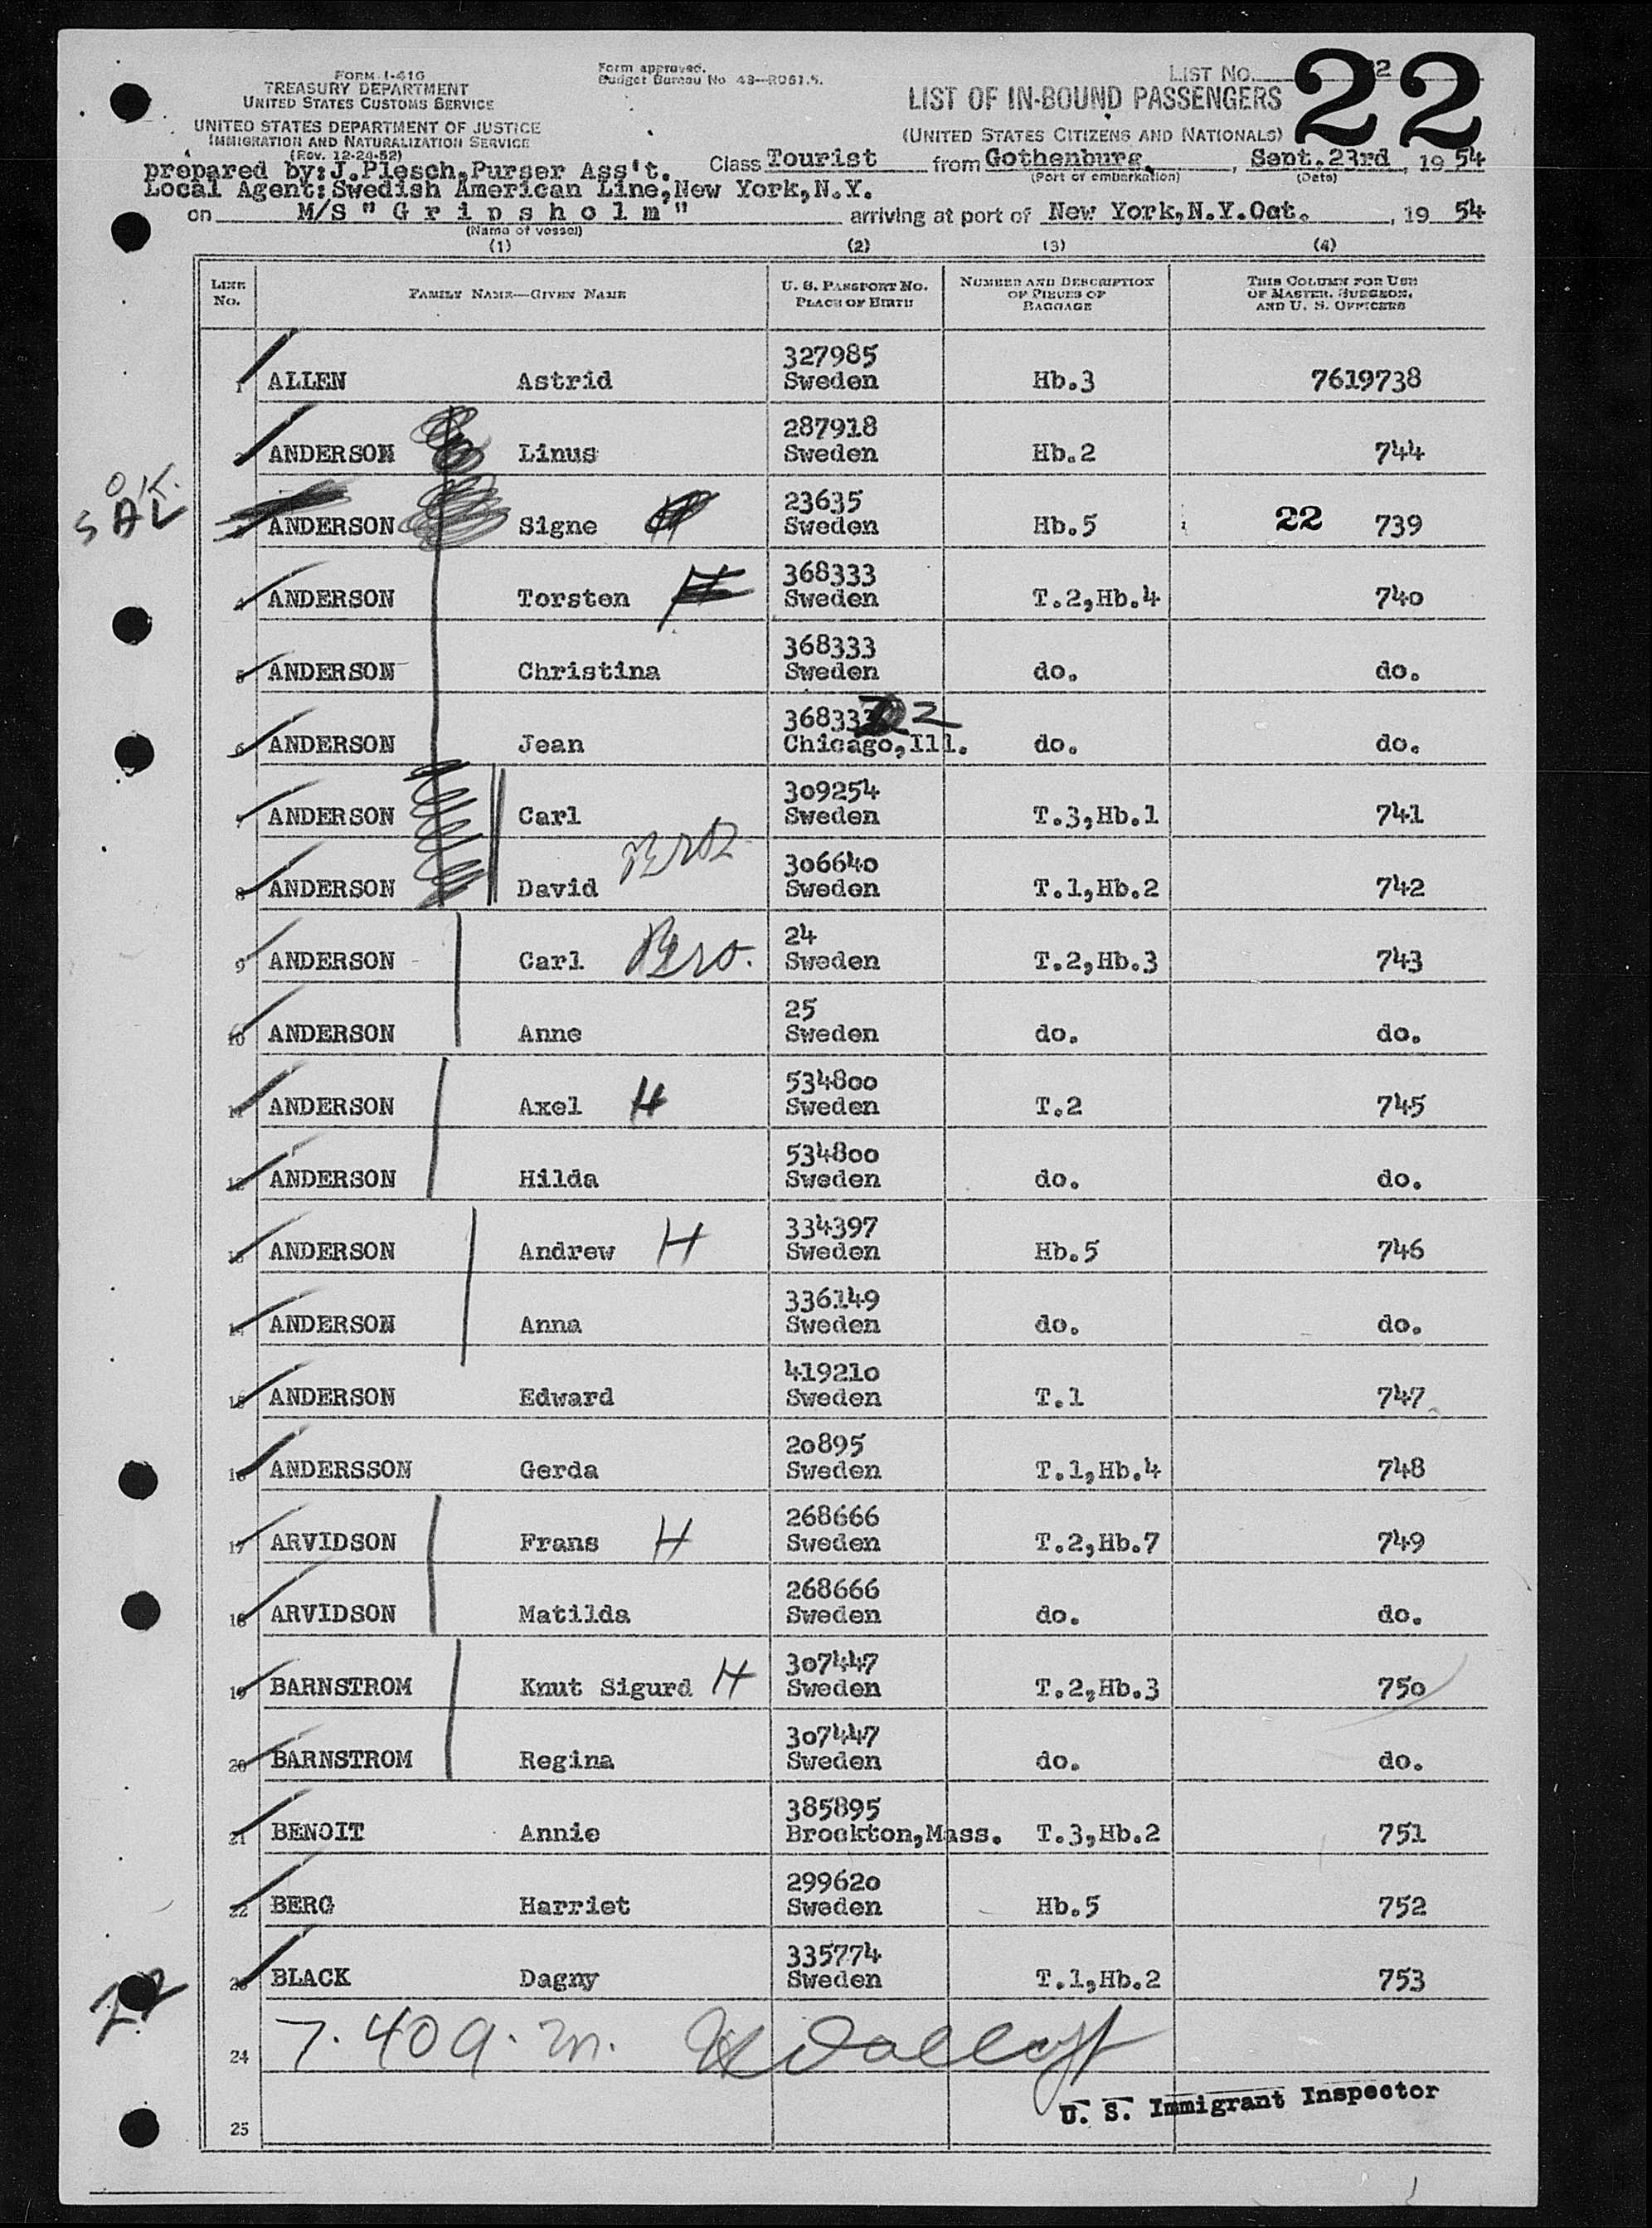 FORM I-416
TREASURY DEPARTMENT
UNITED STATES CUSTOMS SERVICE
UNITED STATES DEPARTMENT OF JUSTICE
IMMIGRATION AND NATURALIZATION SERVICE
(Rev. 12-24-52)
Form approved.
Budget Bureau No. 43—R061.5.
LIST NO. 22
22
LIST OF IN-BOUND PASSENGERS
(UNITED STATES CITIZENS AND NATIONALS)
prepared by: J.Plesch, Purser Ass't. Class Tourist from Gothenburg, Sept. 23rd, 19 54
(Port of embarkation) (Date)
Local Agent: Swedish American Line, New York, N.Y.
on M/S "Gripsholm" arriving at port of New York, N.Y. Oct. , 19 54
(Name of vessel)
(1) (2) (3) (4)
LINE No. FAMILY NAME—GIVEN NAME U. S. PASSPORT NO. PLACE OF BIRTH NUMBER AND DESCRIPTION OF PIECES OF BAGGAGE THIS COLUMN FOR USE OF MASTER, SURGEON, AND U. S. OFFICERS
327985
1 ALLEN Astrid Sweden Hb.3 7619738
287918
2 ANDERSON Linus Sweden Hb.2 744
O.K.
SAL
23635
3 ANDERSON Signe H Sweden Hb.5 22 739
368333
4 ANDERSON Torsten H Sweden T.2,Hb.4 740
368333
5 ANDERSON Christina Sweden do. do.
368333 22
6 ANDERSON Jean Chicago, Ill. do. do.
309254
7 ANDERSON Carl Sweden T.3,Hb.1 741
Bro
306640
8 ANDERSON David Sweden T.1,Hb.2 742
24
9 ANDERSON Carl Bro. Sweden T.2,Hb.3 743
25
10 ANDERSON Anne Sweden do. do.
534800
11 ANDERSON Axel H Sweden T.2 745
534800
12 ANDERSON Hilda Sweden do. do.
334397
13 ANDERSON Andrew H Sweden Hb.5 746
336149
14 ANDERSON Anna Sweden do. do.
419210
15 ANDERSON Edward Sweden T.1 747
20895
16 ANDERSSON Gerda Sweden T.1,Hb.4 748
268666
17 ARVIDSON Frans H Sweden T.2,Hb.7 749
268666
18 ARVIDSON Matilda Sweden do. do.
307447
19 BARNSTROM Knut Sigurd H Sweden T.2,Hb.3 750
307447
20 BARNSTROM Regina Sweden do. do.
385895
21 BENOIT Annie Brockton, Mass. T.3,Hb.2 751
299620
22 BERG Harriet Sweden Hb.5 752
335774
23 BLACK Dagny Sweden T.1,Hb.2 753
22
24 7.40 a.m.
U. S. Immigrant Inspector
25